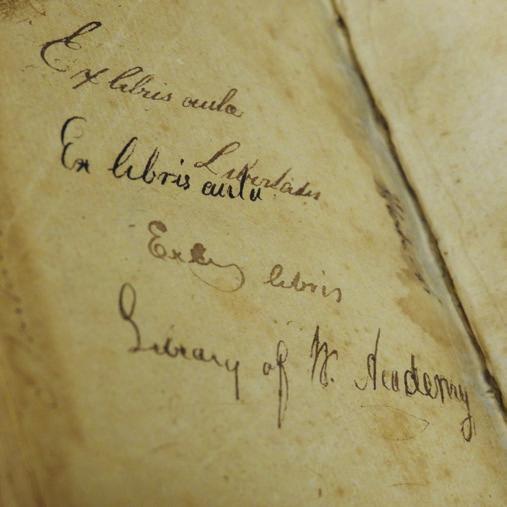 Ex libris aula
Libertatis
Ex libris aula
libris
Library of W. Academy